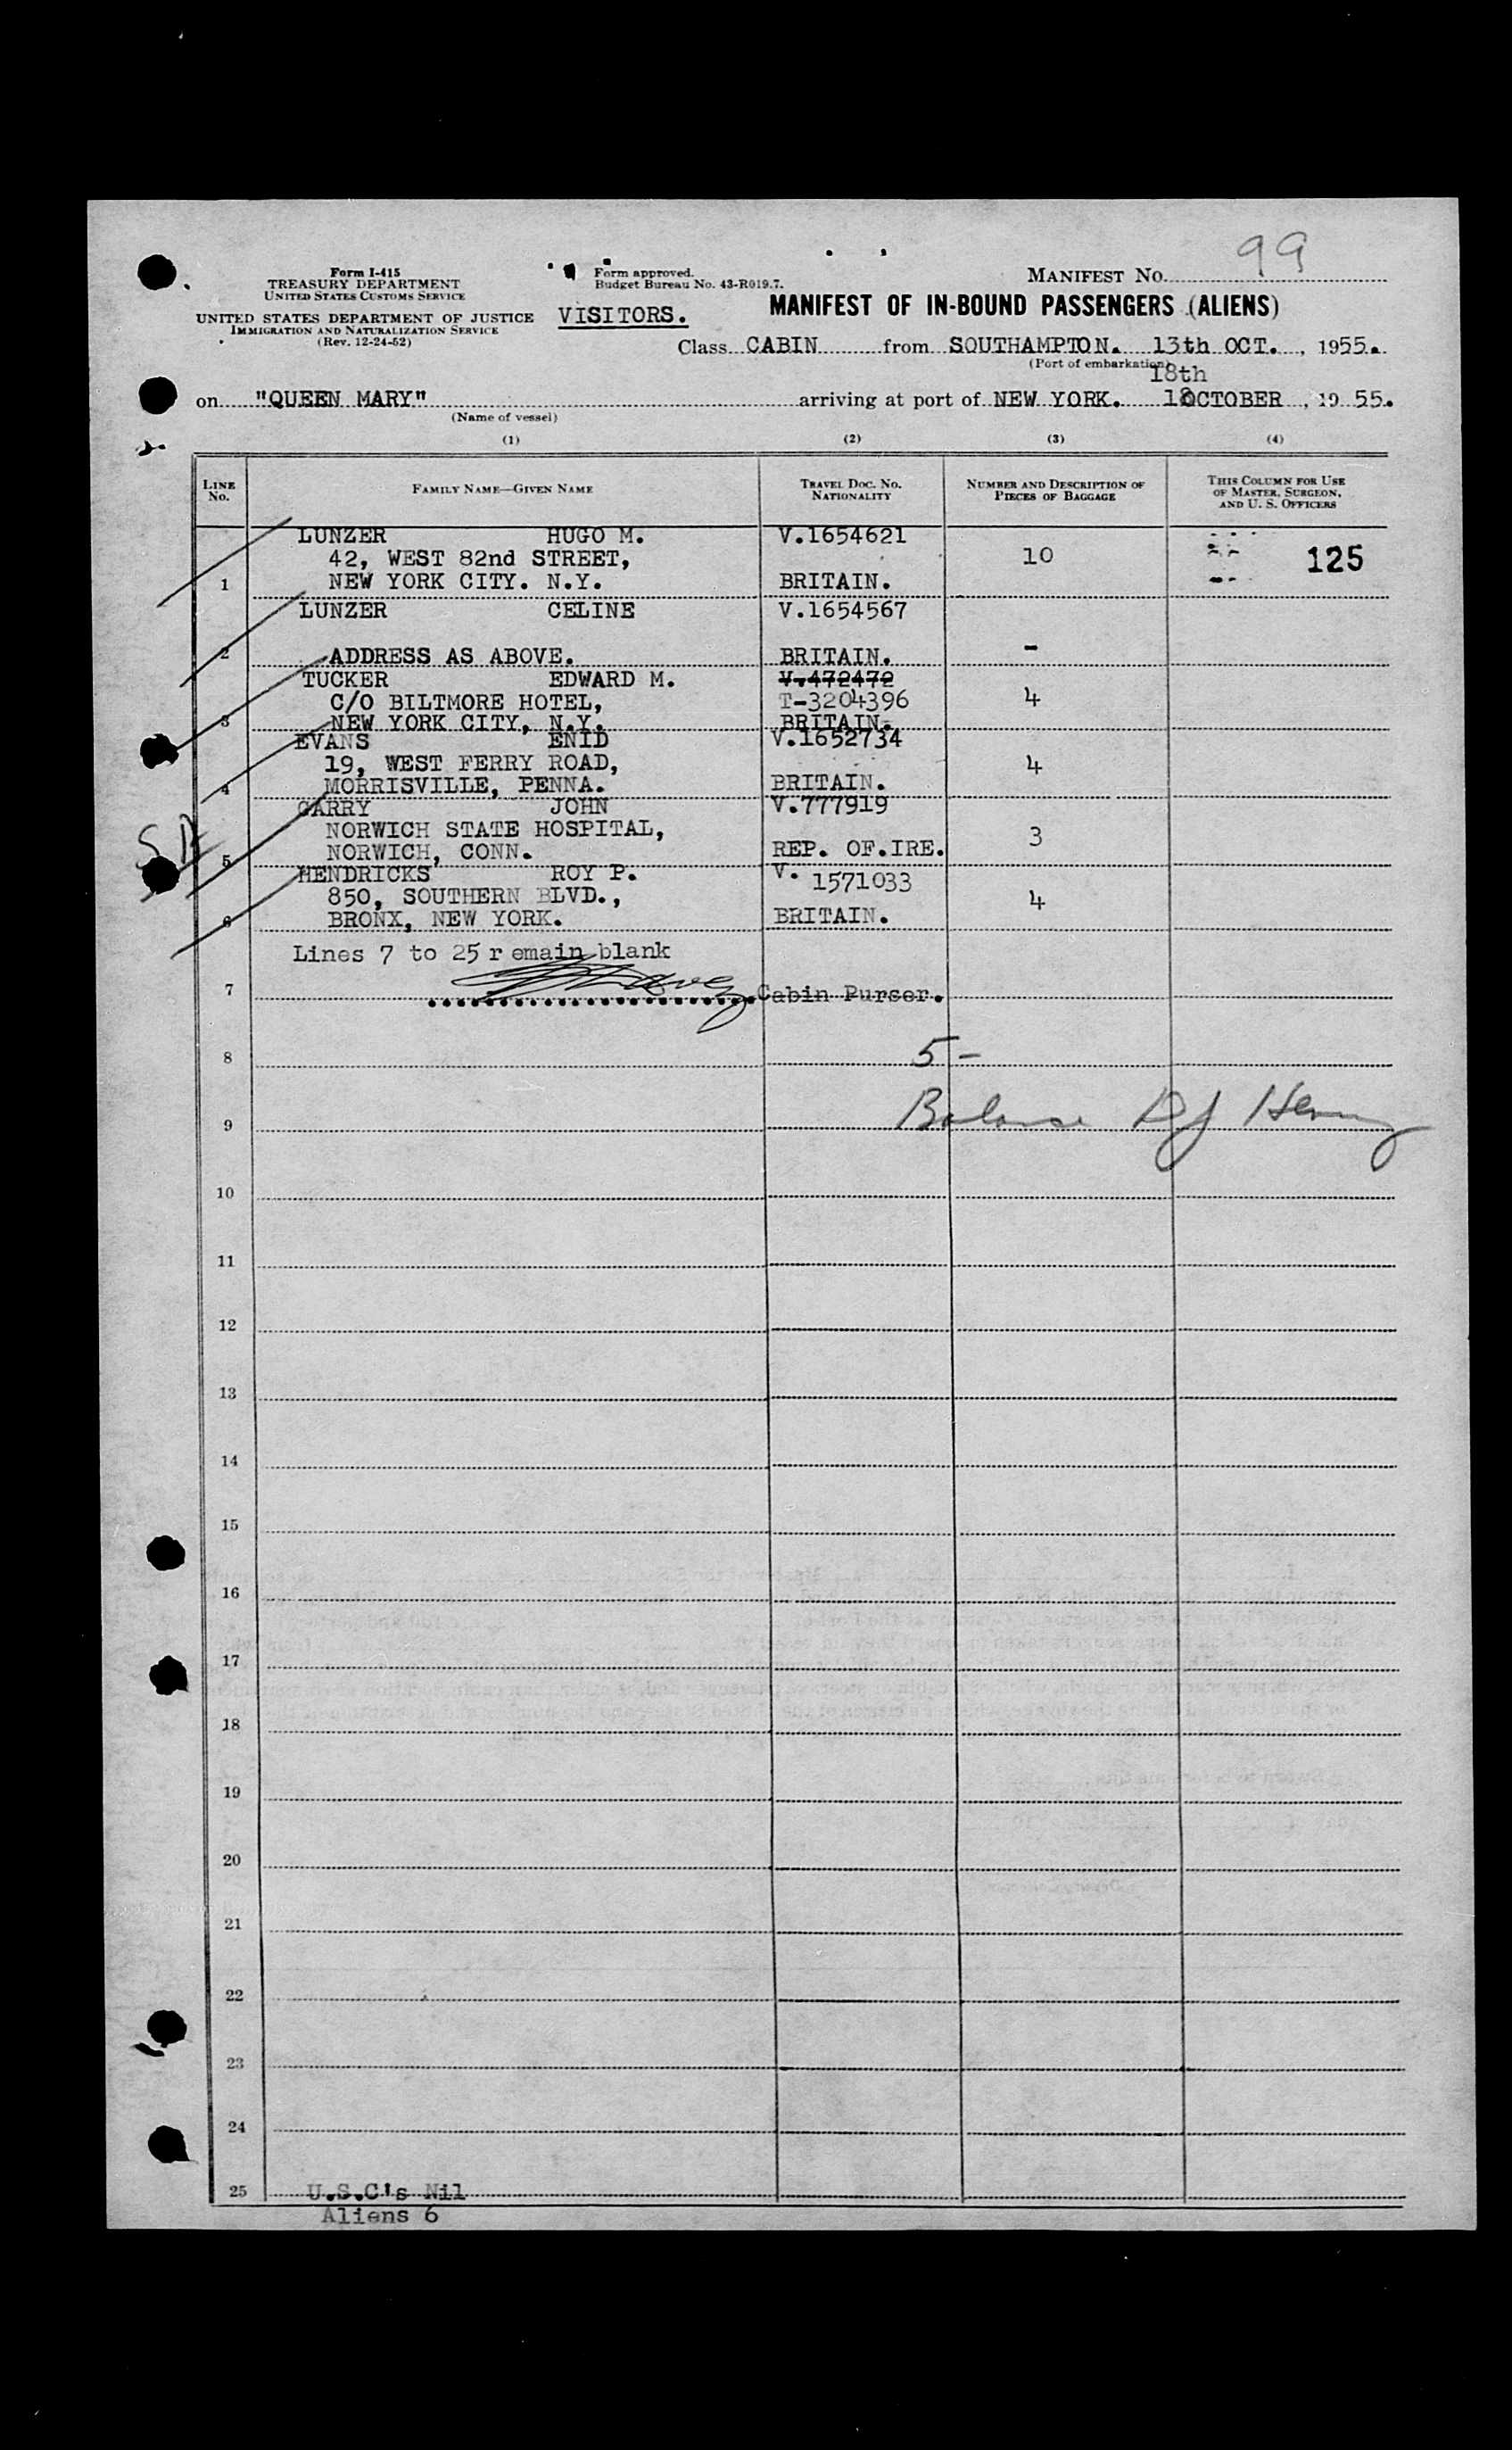 99
Form I-415
TREASURY DEPARTMENT
UNITED STATES CUSTOMS SERVICE
UNITED STATES DEPARTMENT OF JUSTICE
IMMIGRATION AND NATURALIZATION SERVICE
(Rev. 12-24-52)
Form approved.
Budget Bureau No. 43-R019.7.
VISITORS.
MANIFEST NO.
MANIFEST OF IN-BOUND PASSENGERS (ALIENS)
Class CABIN from SOUTHAMPTON. 13th OCT. , 1955.
(Port of embarkation)
18th
on "QUEEN MARY" arriving at port of NEW YORK. OCTOBER , 19 55.
(Name of vessel)
(1) (2) (3) (4)
LINE No.
FAMILY NAME—GIVEN NAME
TRAVEL DOC. NO. NATIONALITY
NUMBER AND DESCRIPTION OF PIECES OF BAGGAGE
THIS COLUMN FOR USE OF MASTER, SURGEON, AND U. S. OFFICERS
LUNZER HUGO M. V.1654621
42, WEST 82nd STREET, 10 125
1 NEW YORK CITY. N.Y. BRITAIN.
LUNZER CELINE V.1654567
2 ADDRESS AS ABOVE. BRITAIN. -
TUCKER EDWARD M. V.472472
C/O BILTMORE HOTEL, T-3204396 4
3 NEW YORK CITY, N.Y. BRITAIN.
EVANS ENID V.1652734
19, WEST FERRY ROAD, 4
4 MORRISVILLE, PENNA. BRITAIN.
GARRY JOHN V.777919
NORWICH STATE HOSPITAL, 3
5 NORWICH, CONN. REP. OF.IRE.
HENDRICKS ROY P. V. 1571033
850, SOUTHERN BLVD., 4
6 BRONX, NEW YORK. BRITAIN.
Lines 7 to 25 r emain blank
7 Cabin Purser.
8 5-
9 Balance
10
11
12
13
14
15
16
17
18
19
20
21
22
23
24
25 U.S.C's Nil
Aliens 6